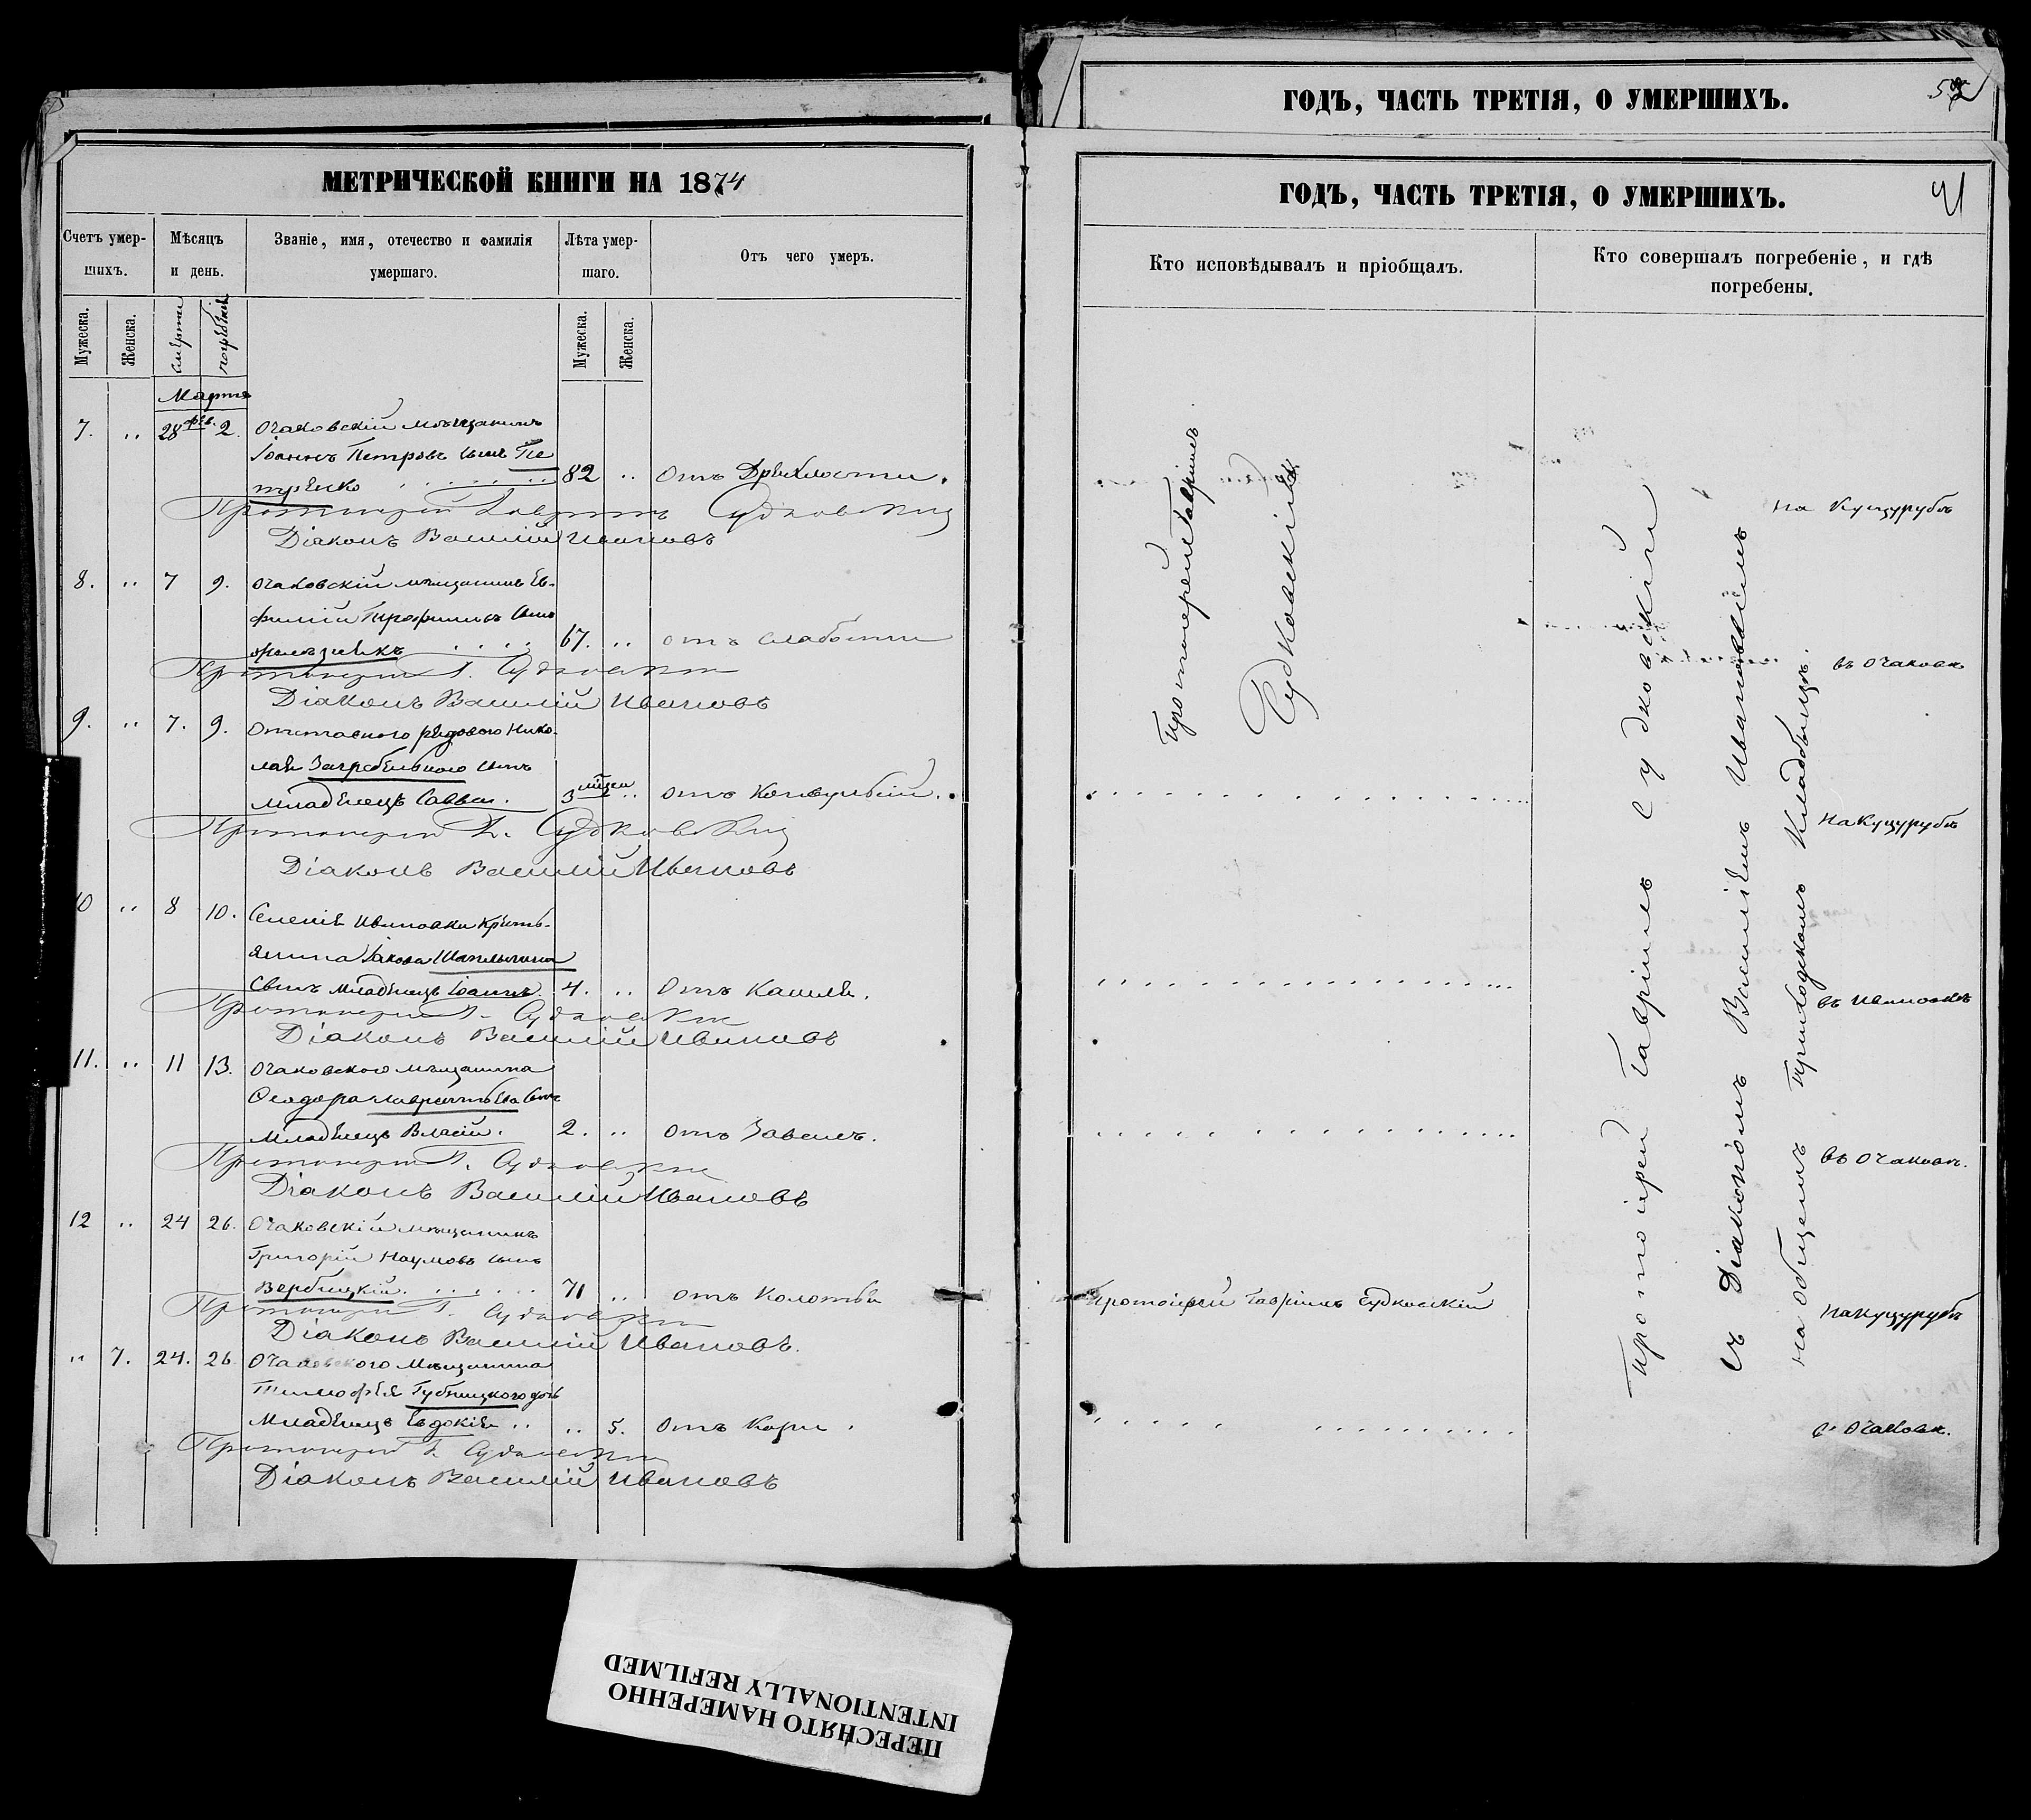 ГОДЪ, ЧАСТЬ ТРЕТІЯ, О УМЕРШИХЪ.
52
МЕТРИЧЕСКОЙ КНИГИ НА 1874
Счетъ умершихъ.
Мѣсяцъ и день.
Званіе, имя, отечество и фамилія умершаго.
Лѣта умершаго.
Отъ чего умеръ.
Мужеска.
Женска.
смерти
погребенія
Мужеска.
Женска.
Марта
7. „ 28 фев. 2. Очаковскій мѣщанинъ
Іоаннъ Петровъ сынъ Пе
тренко 82 „ Отъ Дряхлости.
Протоіерей Гавріилъ Судковскій
Діаконъ Василій Ивановъ
8. „ 7 9. Очаковскій мѣщанинъ Ев-
фимій Трофимовъ сынъ
67. „ отъ слабости
Протоіерей Г. Судковскій
Діаконъ Василій Ивановъ
9. „ 7. 9. Отставного рядового Нико-
лая Загребельного сынъ
младенецъ Савва. 3 мѣсяц „ отъ Конвульсій.
Протоіерей Г. Судковскій
Діаконъ Василій Ивановъ
10 „ 8 10. Селенія Ивановки Кресть-
янина Іакова
сынъ младенецъ Іоаннъ. 4. „ Отъ Кашля.
Протоіерей Г. Судковскій
Діаконъ Василій Ивановъ
11. „ 11 13. Очаковского мѣщанина
Ѳеодора Лаврентьева сынъ
младенецъ Власій. 2. „ отъ
Протоіерей Г. Судковскій
Діаконъ Василій Ивановъ
12 „ 24 26. Очаковскій мѣщанинъ
Григорій Наумовъ сынъ
Вербицкій. 71 „ отъ Колотья
Протоіерей Г. Судковскій
Діаконъ Василій Ивановъ.
„ 7. 24. 26 Очаковского Мѣщанина
Тимофея Губницкого дочь
Младенецъ Евдокія „ „ 5. Отъ Кори.
Протоіерей Г. Судковскій
Діаконъ Василій Ивановъ
ГОДЪ, ЧАСТЬ ТРЕТІЯ, О УМЕРШИХЪ.
Кто исповѣдывалъ и пріобщалъ.
Кто совершалъ погребеніе, и гдѣ погребены.
Протоіерей Гавріилъ
Судковскій
Протоіерей Гавріилъ Судковскій
Протоіерей Гавріилъ Судковскій
съ Діакономъ Василіемъ Ивановымъ
на общемъ приходскомъ кладбищѣ.
на Куцурубѣ
въ Очаковѣ
на Куцурубѣ
въ Ивановкѣ
въ Очаковѣ.
на Куцурубѣ
въ Очаковѣ.
ПЕРЕСНЯТО НАМЕРЕННО
INTENTIONALLY REFILMED